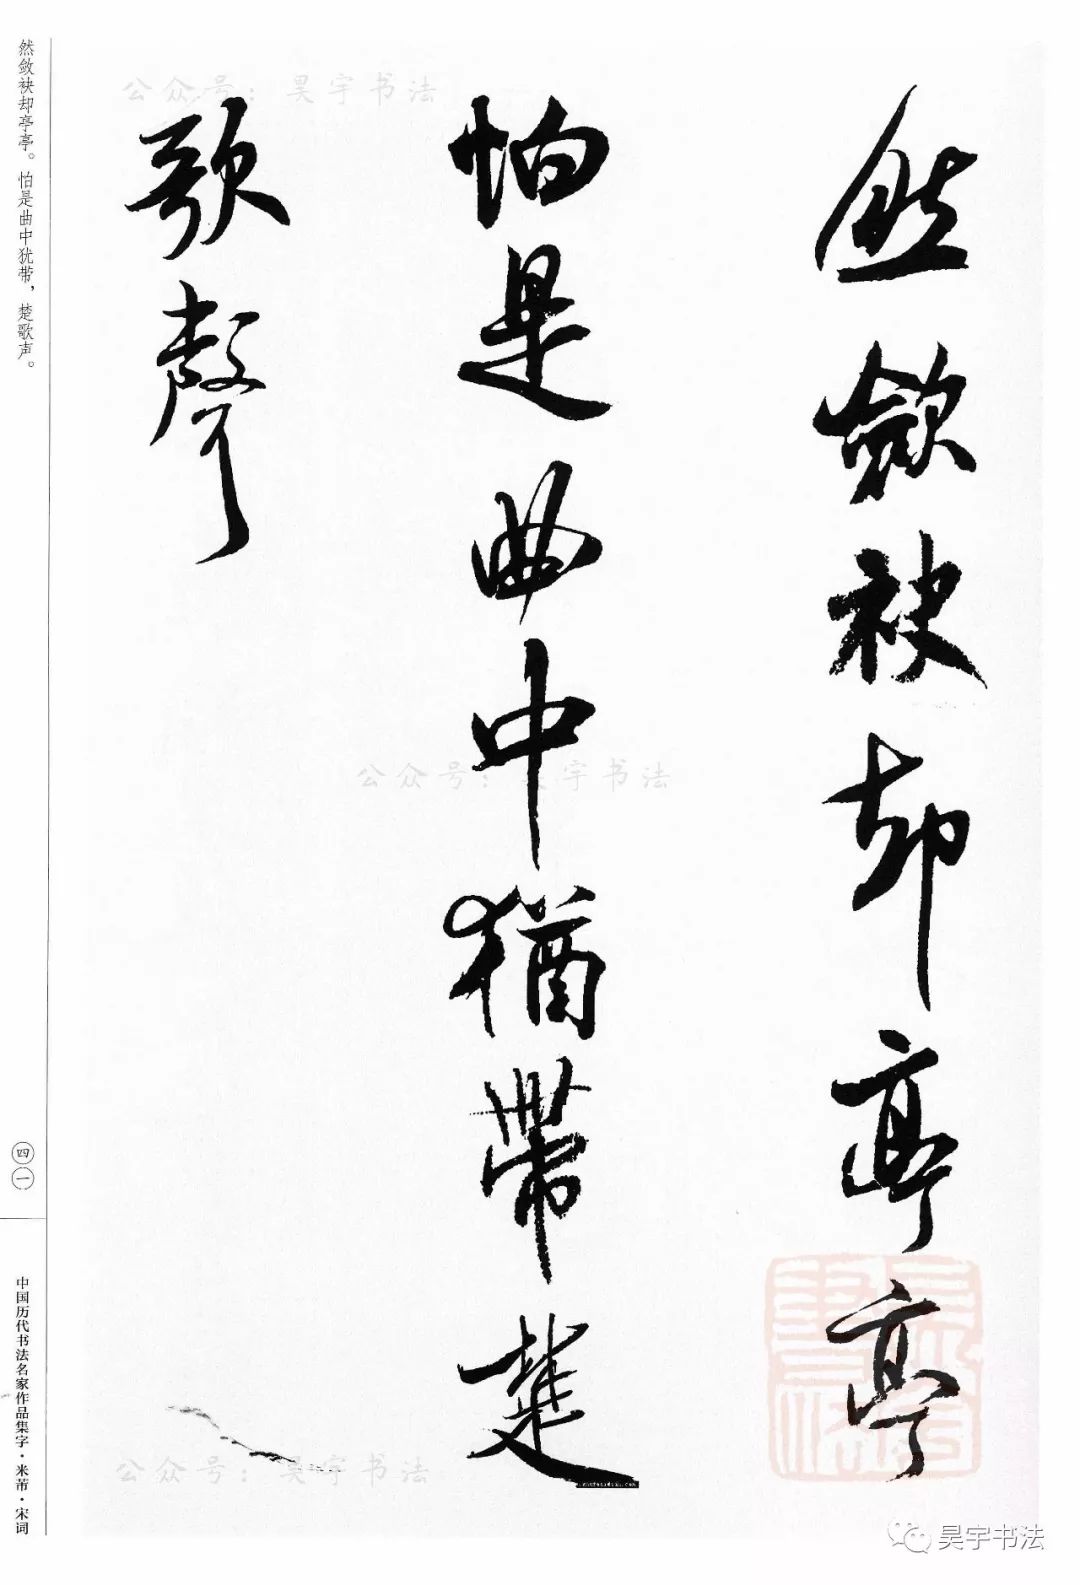 然斂袂却亭亭
怕是曲中猶帶楚
歌聲
然敛袂却亭亭。怕是曲中犹带，楚歌声。
四一
中国历代书法名家作品集字·米芾·宋词
公众号：昊宇书法
公众号：昊宇书法
公众号：昊宇书法
昊宇书法